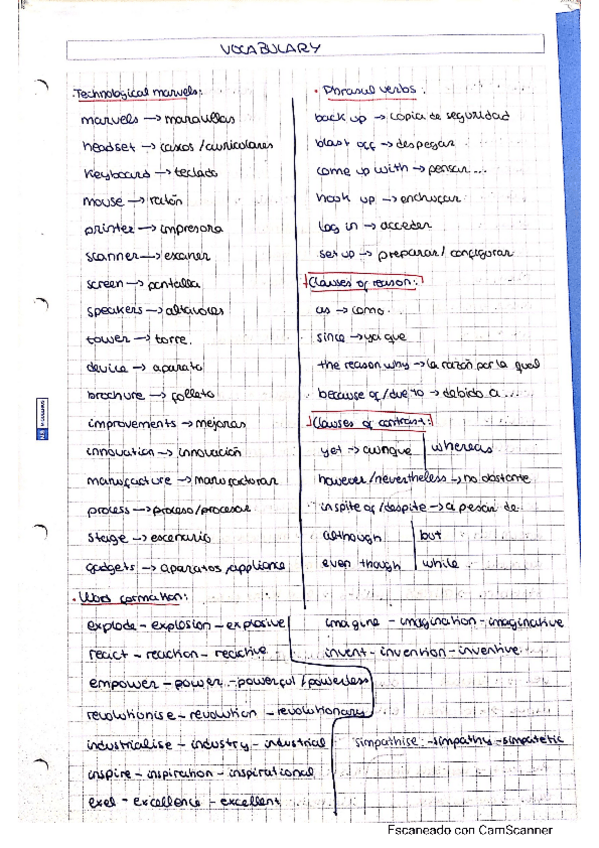 VOCABULARY
Technological marvels:
marvels → maravillas
headset → cascos / auriculares
Keyboard → teclado
mouse → ratón
printer → impresora
scanner → escaner
screen → pantalla
speakers → altavoces
tower → torre.
device → aparato
brochure → folleto
improvements → mejoras
innovation → innovación
manufacture → manufacturar
process → proceso/procesar
stage → escenario
gadgets → aparatos, appliance
· Phrasul verbs:
back up → copia de seguridad
blast off → despegar
come up with → pensar...
hook up → enchufar
log in → acceder
set up → preparar/ configurar
Clauses of reason:
as → como
since → ya que
the reason why → la razón por la qual
because of/due to → debido a...
Clauses of contrast:
yet → aunque | whereas
however/nevertheless → no obstante
inspite of/despite → a pesar de
although | but
even though | while
· Word formation:
explode - explosion - explosive
react - reaction - reactive
empower - power - powerful / powerless
revolutionise - revolution - revolutionary
industrialise - industry - industrial
inspire - inspiration - inspirational
exel - excellence - excellent
imagine - imagination - imaginative
invent - invention - inventive
simpathise - simpathy - simpatetic
Escaneado con CamScanner